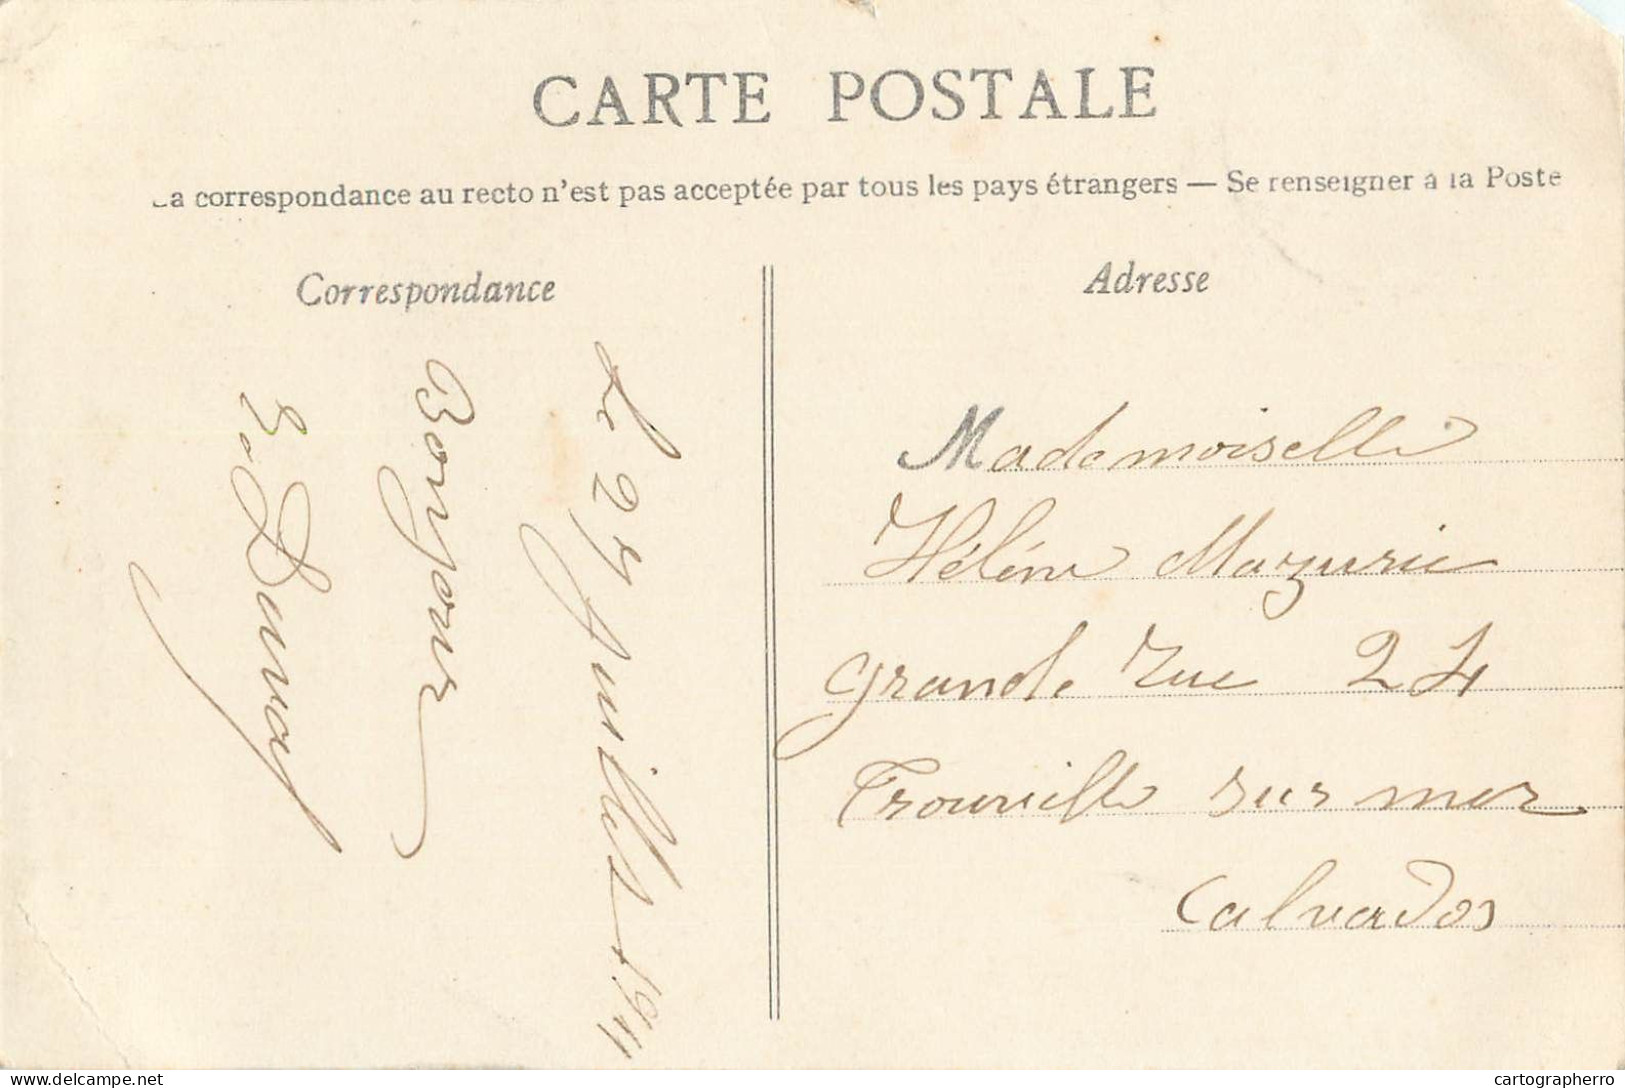 CARTE POSTALE
La correspondance au recto n'est pas acceptée par tous les pays étrangers — Se renseigner à la Poste
Correspondance
Le 24 juillet 1911
Bonjour
Duval
Adresse
Mademoiselle
Hélène Mazurie
grande rue 24
Trouville sur mer
Calvados
delcampe.net
cartographerro